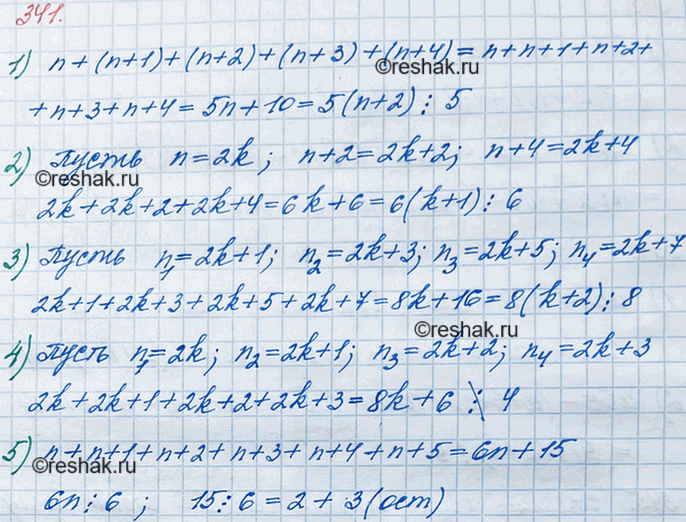 341.
1) n + (n+1) + (n+2) + (n+3) + (n+4) = n+n+1+n+2+
©reshak.ru
+ n+3+n+4 = 5n+10 = 5(n+2) ⋮ 5
2) Пусть n=2k; n+2=2k+2; n+4=2k+4
©reshak.ru
2k+2k+2+2k+4=6k+6=6(k+1)⋮ 6
3) Пусть n₁=2k+1; n₂=2k+3; n₃=2k+5; n₄=2k+7
©reshak.ru
2k+1+2k+3+2k+5+2k+7=8k+16=8(k+2)⋮8
©reshak.ru
4) Пусть n₁=2k; n₂=2k+1; n₃=2k+2; n₄=2k+3
2k+2k+1+2k+2+2k+3=8k+6 ⋮̸ 4
©reshak.ru
5) n+n+1+n+2+n+3+n+4+n+5=6n+15
6n⋮6 ; 15:6=2+3(ост)
©reshak.ru